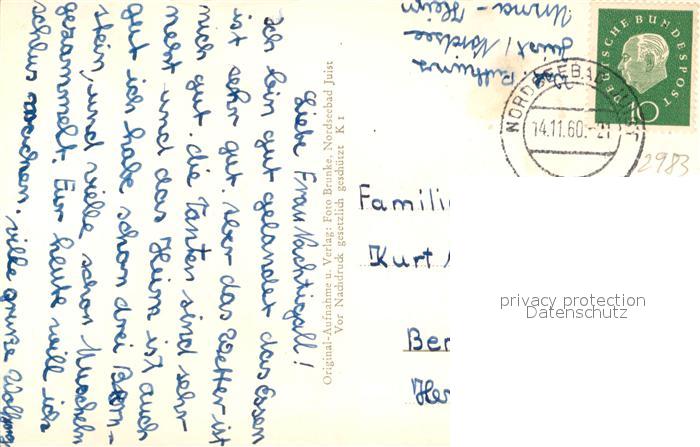 Liebe Frau Nachtigall!
Ich bin gut gelandet das Essen
ist sehr gut. Aber das Wetter ist
nich gut. die Tanten sind sehr
nest und das Heim ist auch
gut ich habe schon drei Bern-
stein, und vielle schon Muscheln
gezammelt. Für heute will ich
schluss machen. ville grüße Wolfgang
Original-Aufnahme u. Verlag: Foto Brunke, Nordseebad Juist
Vor Nachdruck gesetzlich geschützt K 1
Juist / Nordsee
-Heim
DEUTSCHE BUNDESPOST
NORDSEEBAD
14.11.60.-21
2983
Famili
Kurt
Ber
Her
privacy protection
Datenschutz